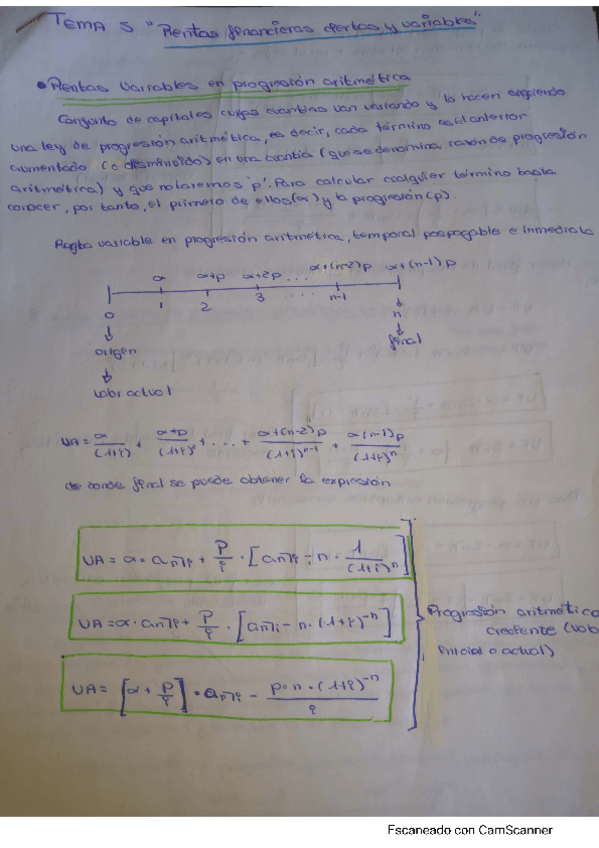 TEMA 5 "Rentas financieras ciertas y variables"
• Rentas variables en progresión aritmética
Conjunto de capitales cuyas cuantías van variando y lo hacen siguiendo
una ley de progresión aritmética, es decir, cada término es el anterior
aumentado (o disminuido) en una cuantía (que se denomina razón de progresión
aritmética) y que notaremos 'p'. Para calcular cualquier término basta
conocer, por tanto, el primero de ellos (α) y la progresión (p).
Renta variable en progresión aritmética, temporal pospagable e inmediata
α α+p α+2p ... α+(n-2)p α+(n-1)p
0 1 2 3 ... n-1 n
origen final
valor actual
VA = α/(1+i) + α+p/(1+i)² + ... + α+(n-2)p/(1+i)^n-1 + α(n-1)p/(1+i)^n
de donde final se puede obtener la expresión
VA = α · an¬i + p/i · [an¬i - n · 1/(1+i)^n]
VA = α · an¬i + p/i · [an¬i - n · (1+i)^-n]
Progresión aritmética
creciente (valor
inicial o actual)
VA = [α + p/i] · an¬i - p·n·(1+i)^-n/i
Escaneado con CamScanner